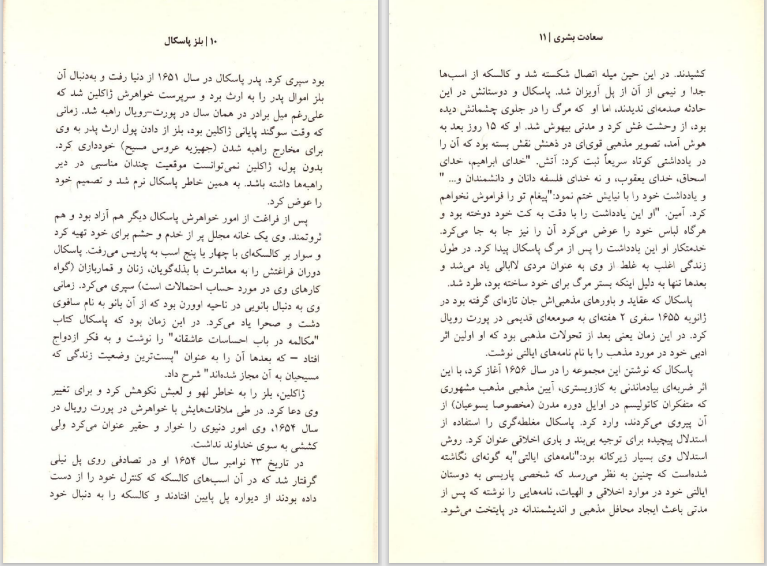 ۱۰ | بلز پاسکال
بود سپری کرد. پدر پاسکال در سال ۱۶۵۱ از دنیا رفت و به‌دنبال آن
بلز اموال پدر را به ارث برد و سرپرست خواهرش ژاکلین شد که
علی‌رغم میل برادر در همان سال در پورت-رویال راهبه شد. زمانی
که وقت سوگند پایانی ژاکلین بود، بلز از دادن پول ارث پدر به وی
برای مخارج راهبه شدن (جهیزیه عروس مسیح) خودداری کرد.
بدون پول، ژاکلین نمی‌توانست موقعیت چندان مناسبی در دیر
راهبه‌ها داشته باشد. به همین خاطر پاسکال نرم شد و تصمیم خود
را عوض کرد.
پس از فراغت از امور خواهرش پاسکال دیگر هم آزاد بود و هم
ثروتمند. وی یک خانه مجلل پر از خدم و حشم برای خود تهیه کرد
و سوار بر کالسکه‌ای با چهار یا پنج اسب به پاریس می‌رفت. پاسکال
دوران فراغتش را به معاشرت با بذله‌گویان، زنان و قماربازان (گواه
کارهای وی در مورد حساب احتمالات است) سپری می‌کرد. زمانی
وی به دنبال بانویی در ناحیه اوورن بود که از آن بانو به نام سافوی
دشت و صحرا یاد می‌کرد. در این زمان بود که پاسکال کتاب
"مکالمه در باب احساسات عاشقانه" را نوشت و به فکر ازدواج
افتاد – که بعدها آن را به عنوان "پست‌ترین وضعیت زندگی که
مسیحیان به آن مجاز شده‌اند" شرح داد.
ژاکلین، بلز را به خاطر لهو و لعبش نکوهش کرد و برای تغییر
وی دعا کرد. در طی ملاقات‌هایش با خواهرش در پورت رویال در
سال ۱۶۵۴، وی امور دنیوی را خوار و حقیر عنوان می‌کرد ولی
کششی به سوی خداوند نداشت.
در تاریخ ۲۳ نوامبر سال ۱۶۵۴ او در تصادفی روی پل نیلی
گرفتار شد که در آن اسب‌های کالسکه که کنترل خود را از دست
داده بودند از دیواره پل پایین افتادند و کالسکه را به دنبال خود
سعادت بشری | ۱۱
کشیدند. در این حین میله اتصال شکسته شد و کالسکه از اسب‌ها
جدا و نیمی از آن از پل آویزان شد. پاسکال و دوستانش در این
حادثه صدمه‌ای ندیدند، اما او که مرگ را در جلوی چشمانش دیده
بود، از وحشت غش کرد و مدتی بیهوش شد. او که ۱۵ روز بعد به
هوش آمد، تصویر مذهبی قوی‌ای در ذهنش نقش بسته بود که آن را
در یادداشتی کوتاه سریعاً ثبت کرد: آتش. "خدای ابراهیم، خدای
اسحاق، خدای یعقوب، و نه خدای فلسفه دانان و دانشمندان و... "
و یادداشت خود را با نیایش ختم نمود:"پیغام تو را فراموش نخواهم
کرد. آمین. "او این یادداشت را با دقت به کت خود دوخته بود و
هرگاه لباس خود را عوض می‌کرد آن را نیز جا به جا می‌کرد.
خدمتکار او این یادداشت را پس از مرگ پاسکال پیدا کرد. در طول
زندگی اغلب به غلط از وی به عنوان مردی لاابالی یاد می‌شد و
بعدها تنها به دلیل اینکه بستر مرگ برای خود ساخته بود، طرد شد.
پاسکال که عقاید و باورهای مذهبی‌اش جان تازه‌ای گرفته بود در
ژانویه ۱۶۵۵ سفری ۲ هفته‌ای به صومعه‌ای قدیمی در پورت رویال
کرد. در این زمان یعنی بعد از تحولات مذهبی بود که او اولین اثر
ادبی خود در مورد مذهب را با نام نامه‌های ایالتی نوشت.
پاسکال که نوشتن این مجموعه را در سال ۱۶۵۶ آغاز کرد، با این
اثر ضربه‌ای بیادماندنی به کازویستری، آیین مذهبی مذهب مشهوری
که متفکران کاتولیسم در اوایل دوره مدرن (مخصوصا یسوعیان) از
آن پیروی می‌کردند، وارد کرد. پاسکال مغلطه‌گری را استفاده از
استدلال پیچیده برای توجیه بی‌بند و باری اخلاقی عنوان کرد. روش
استدلال وی بسیار زیرکانه بود:"نامه‌های ایالتی"به گونه‌ای نگاشته
شده‌است که چنین به نظر می‌رسد که شخصی پاریسی به دوستان
ایالتی خود در موارد اخلاقی و الهیات، نامه‌هایی را نوشته که پس از
مدتی باعث ایجاد محافل مذهبی و اندیشمندانه در پایتخت می‌شود.